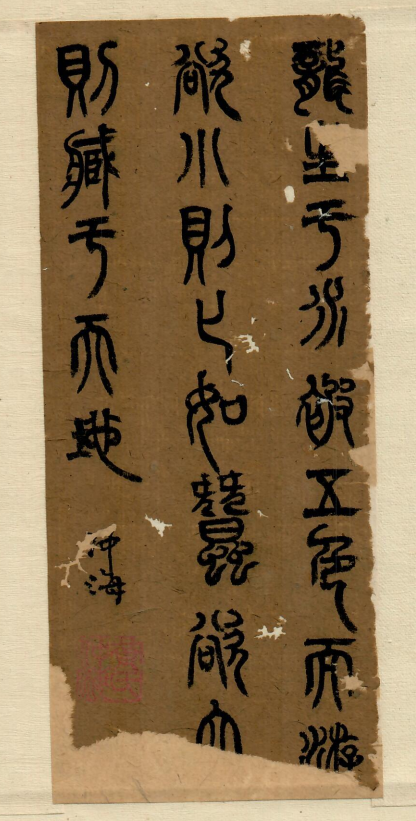 龍生于水被五色而游
欲小則匕如蠶欲大
則藏于天地
沖海